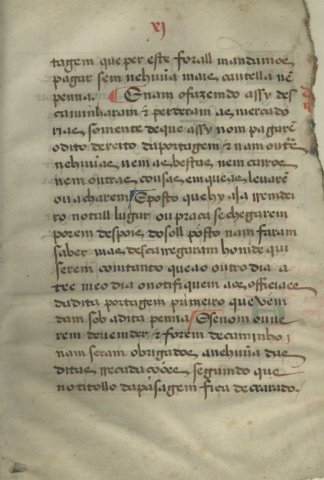 xj
tagem que per este forall mandamos
pagar sem nehuũa mais cautella nẽ
penna. ¶ E nam o fazendo assy des
caminharam & perderam as mercado
rias somente de que assy nom pagarẽ
o dito dereito da portagem & nam outrẽ
nehuũas nem as bestas nem carros
nem outras cousas em que as levarẽ
ou acharem E posto que hy aja rendei
ro no tall lugar ou praça se chegarem
porem despois do soll posto nam faram
saber mas descarregaram homde qui
serem comtanto que ao outro dia a
tee meo dia o notifiquem aos officiaes
da dita portagem primeiro que vem
dam sob a dita penna E se nom ouve
rem de vender & forem de caminho
nam seram obrigados a nehuũa das
ditas recadações segundo que
no titollo da pasagem fica decrarado.